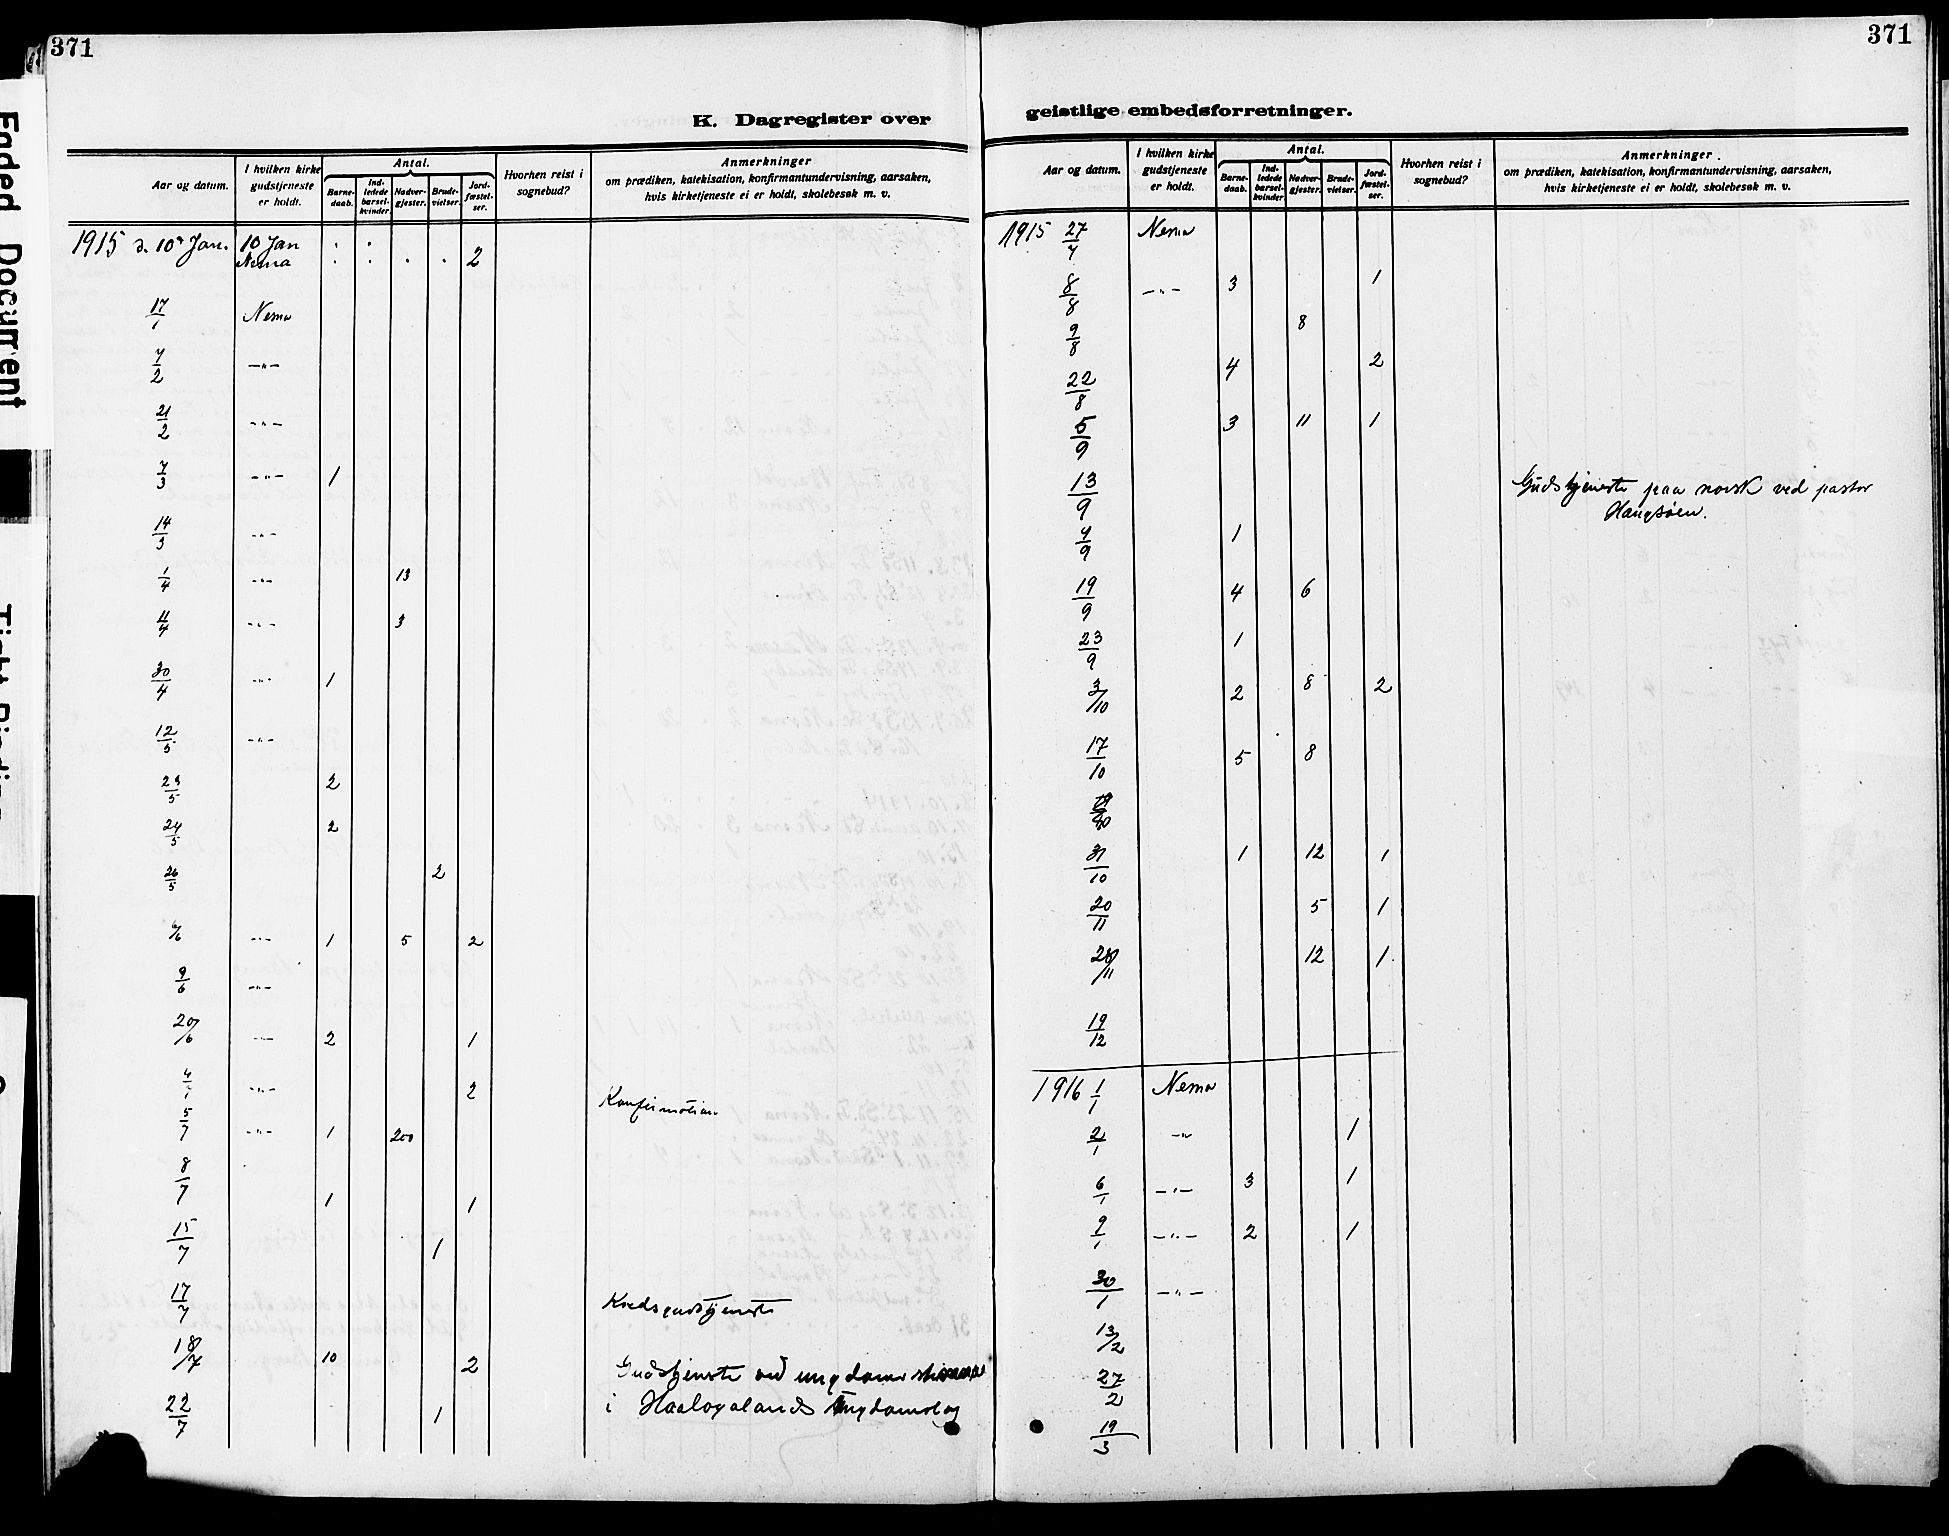 371
K. Dagregister over
Aar og datum.
I hvilken kirke gudstjeneste er holdt.
Antal.
Barnedaab.
Indledede barselkvinder.
Nadvergjester.
Brudevielser.
Jordfæstelser.
Hvorhen reist i sognebud?
Anmerkninger
om prædiken, katekisation, konfirmantundervisning, aarsaken,
hvis kirketjeneste ei er holdt, skolebesøk m. v.
1915 d. 10de Jan. 10 Jan
Nesna 2
17/1 Nesna
7/2 -"-
21/2 -"-
7/3 -"- 1
14/3 -"-
1/4 -"- 13
4/4 -"- 3
30/4 -"- 1
12/5 -"-
23/5 2
24/5 2
26/5 2
6/6 -"- 1 5 2
9/6 -"-
20/6 -"- 2 1
4/7 -"- 2 Konfirmation
5/7 -"- 1 200
8/7 1 1
15/7 1
17/7 Kredsgudstjeneste
18/7 10 2 Gudstjeneste ved ungdomsstevne
22/7 1 i Haalogalands Ungdomslag
371
geistlige embedsforretninger.
Aar og datum.
I hvilken kirke gudstjeneste er holdt.
Antal.
Barnedaab.
Indledede barselkvinder
Nadvergjester.
Brudevielser.
Jordfæstelser.
Hvorhen reist i sognebud?
Anmerkninger.
om prædiken, katekisation, konfirmantundervisning, aarsaken,
hvis kirketjeneste ei er holdt, skolebesøk m. v.
1915 27/7 Nesna
8/8 -"- 3 1
9/8 8
22/8 4 2
5/9 3 11 1
13/9 Gudstjeneste paa norsk ved pastor
Haugsøen.
9/9 1
19/9 4 6
23/9 1
3/10 2 8 2
17/10 5 8
31/10 1 12 1
20/11 5 1
28/11 12 1
19/12
1916 1/1 Nesna
2/1 -"- 1
6/1 -"- 3 1
9/1 -"- 2 1
30/1 -"-
13/2
27/2
19/3